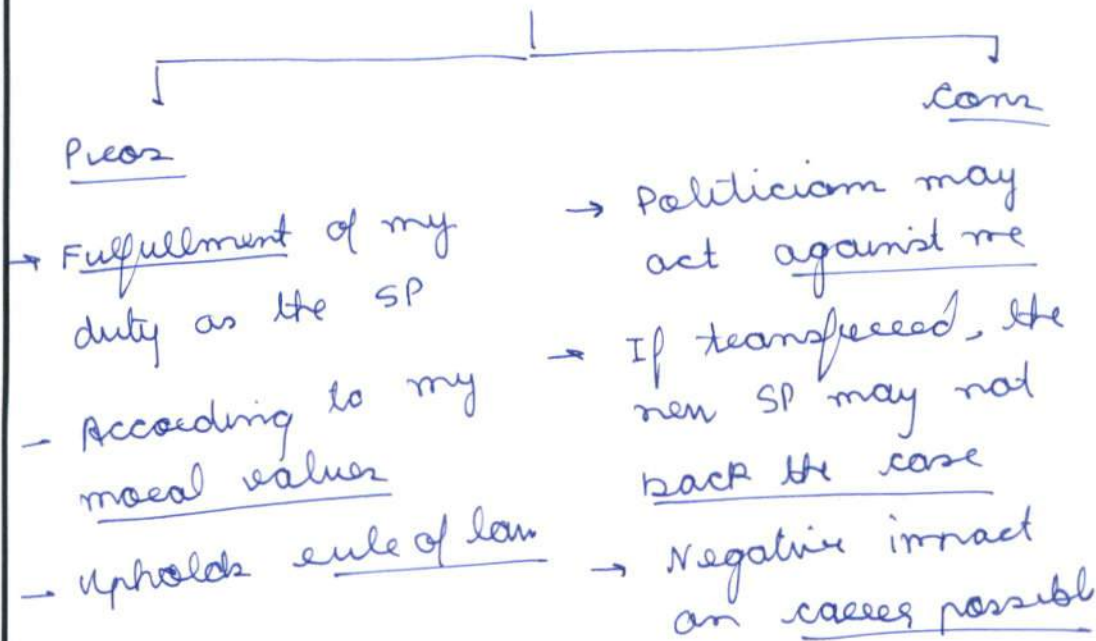 Pros
→ Fulfullment of my
duty as the SP
- According to my
moral values
- Upholds rule of law
Cons
→ Politician may
act against me
→ If transferred, the
new SP may not
back the case
→ Negative impact
on career possible